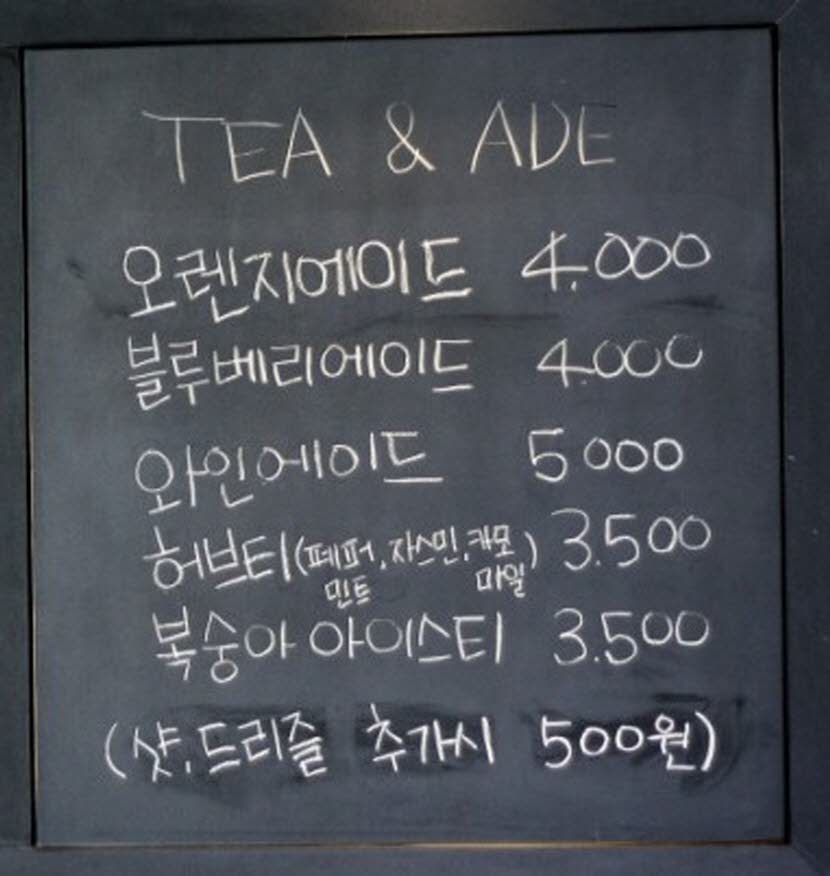 TEA & ADE
오렌지에이드 4.000
블루베리에이드 4.000
와인에이드 5000
허브티(페퍼민트,자스민,캐모마일) 3.500
복숭아 아이스티 3.500
(샷,드리즐 추가시 500원)